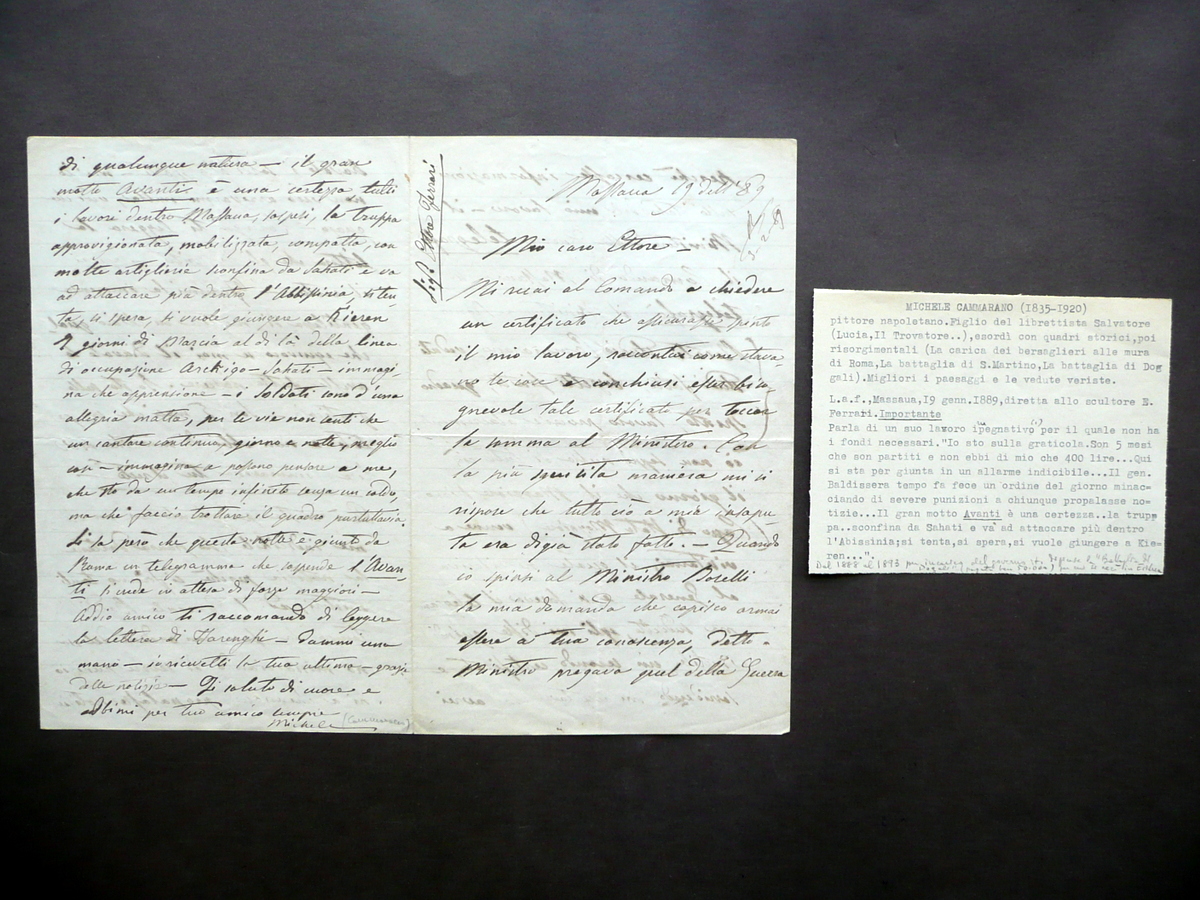 di qualunque natura — il gran
motto Avanti è una certezza tutti
i lavori dentro Massaua, sospesi, la truppa
approvigionata, mobilizzata, compatta, con
molte artiglierie sconfina da Sahati e va
ad attaccare più dentro l'Abissinia, si ten
ta, si spera, si vuole giungere a Kieren
giorni di Marcia al di là della linea
di occupazione Archigo - Sahati - immagi
na che apprensione - i soldati sono d'una
allegria matta, per le vie non senti che
un cantare continuo, giorno e notte, meglio
così - immagina se possono pensare a me,
che sto da un tempo infinito senza un soldo,
ma che faccio trottare il quadro puttuttavia
Si sa però che questa notte è giunto da
Roma un telegramma che sospende l'Avan-
ti si vede in attesa di forze maggiori -
Addio amico ti raccomando di leggere
la lettera di - dammi una
mano - io ricevetti la tua ultima - grazie
delle notizie - Ti saluto di cuore e
abbimi per tuo amico sempre
Michele (Cammarano)
Sigr. Ettore Ferrari
Massaua 19 dell' 89
Mio caro Ettore -
Mi recai al Comando a chiedere
un certificato che assicurasse
il mio lavoro, raccontai come stava
no le cose e conchiusi esser biso
gnevole tale certificato per toccar
la somma al Ministero. Con
la più squisita maniera mi si
rispose che tutto ciò a mia insapu
ta era digià stato fatto. - Quando
io spinsi al Ministro Boselli
la mia domanda che capisco ormai
essere a tua conoscenza, detto
Ministro pregava quel della Guerra
MICHELE CAMMARANO (I835-I920)
pittore napoletano.Figlio del librettista Salvatore
(Lucia,Il Trovatore..),esordì con quadri storici,poi
risorgimentali (La carica dei bersaglieri alle mura
di Roma,La battaglia di S.Martino,La battaglia di Dog
gali).Migliori i paesaggi e le vedute veriste.
L.a.f.,Massaua,I9 genn.I889,diretta allo scultore E.
Ferrari.Importante
Parla di un suo lavoro impegnativo per il quale non ha
i fondi necessari."Io sto sulla graticola.Son 5 mesi
che son partiti e non ebbi di mio che 400 lire...Qui
si sta per giunta in un allarme indicibile...Il gen.
Baldissera tempo fa fece un ordine del giorno minac-
ciando di severe punizioni a chiunque propalasse no-
tizie...Il gran motto Avanti è una certezza..la trupp
pa..sconfina da Sahati e va ad attaccare più dentro
l'Abissinia;si tenta,si spera,si vuole giungere a Kie-
ren...".
Dal 1888 al 1893 per incarico del governo